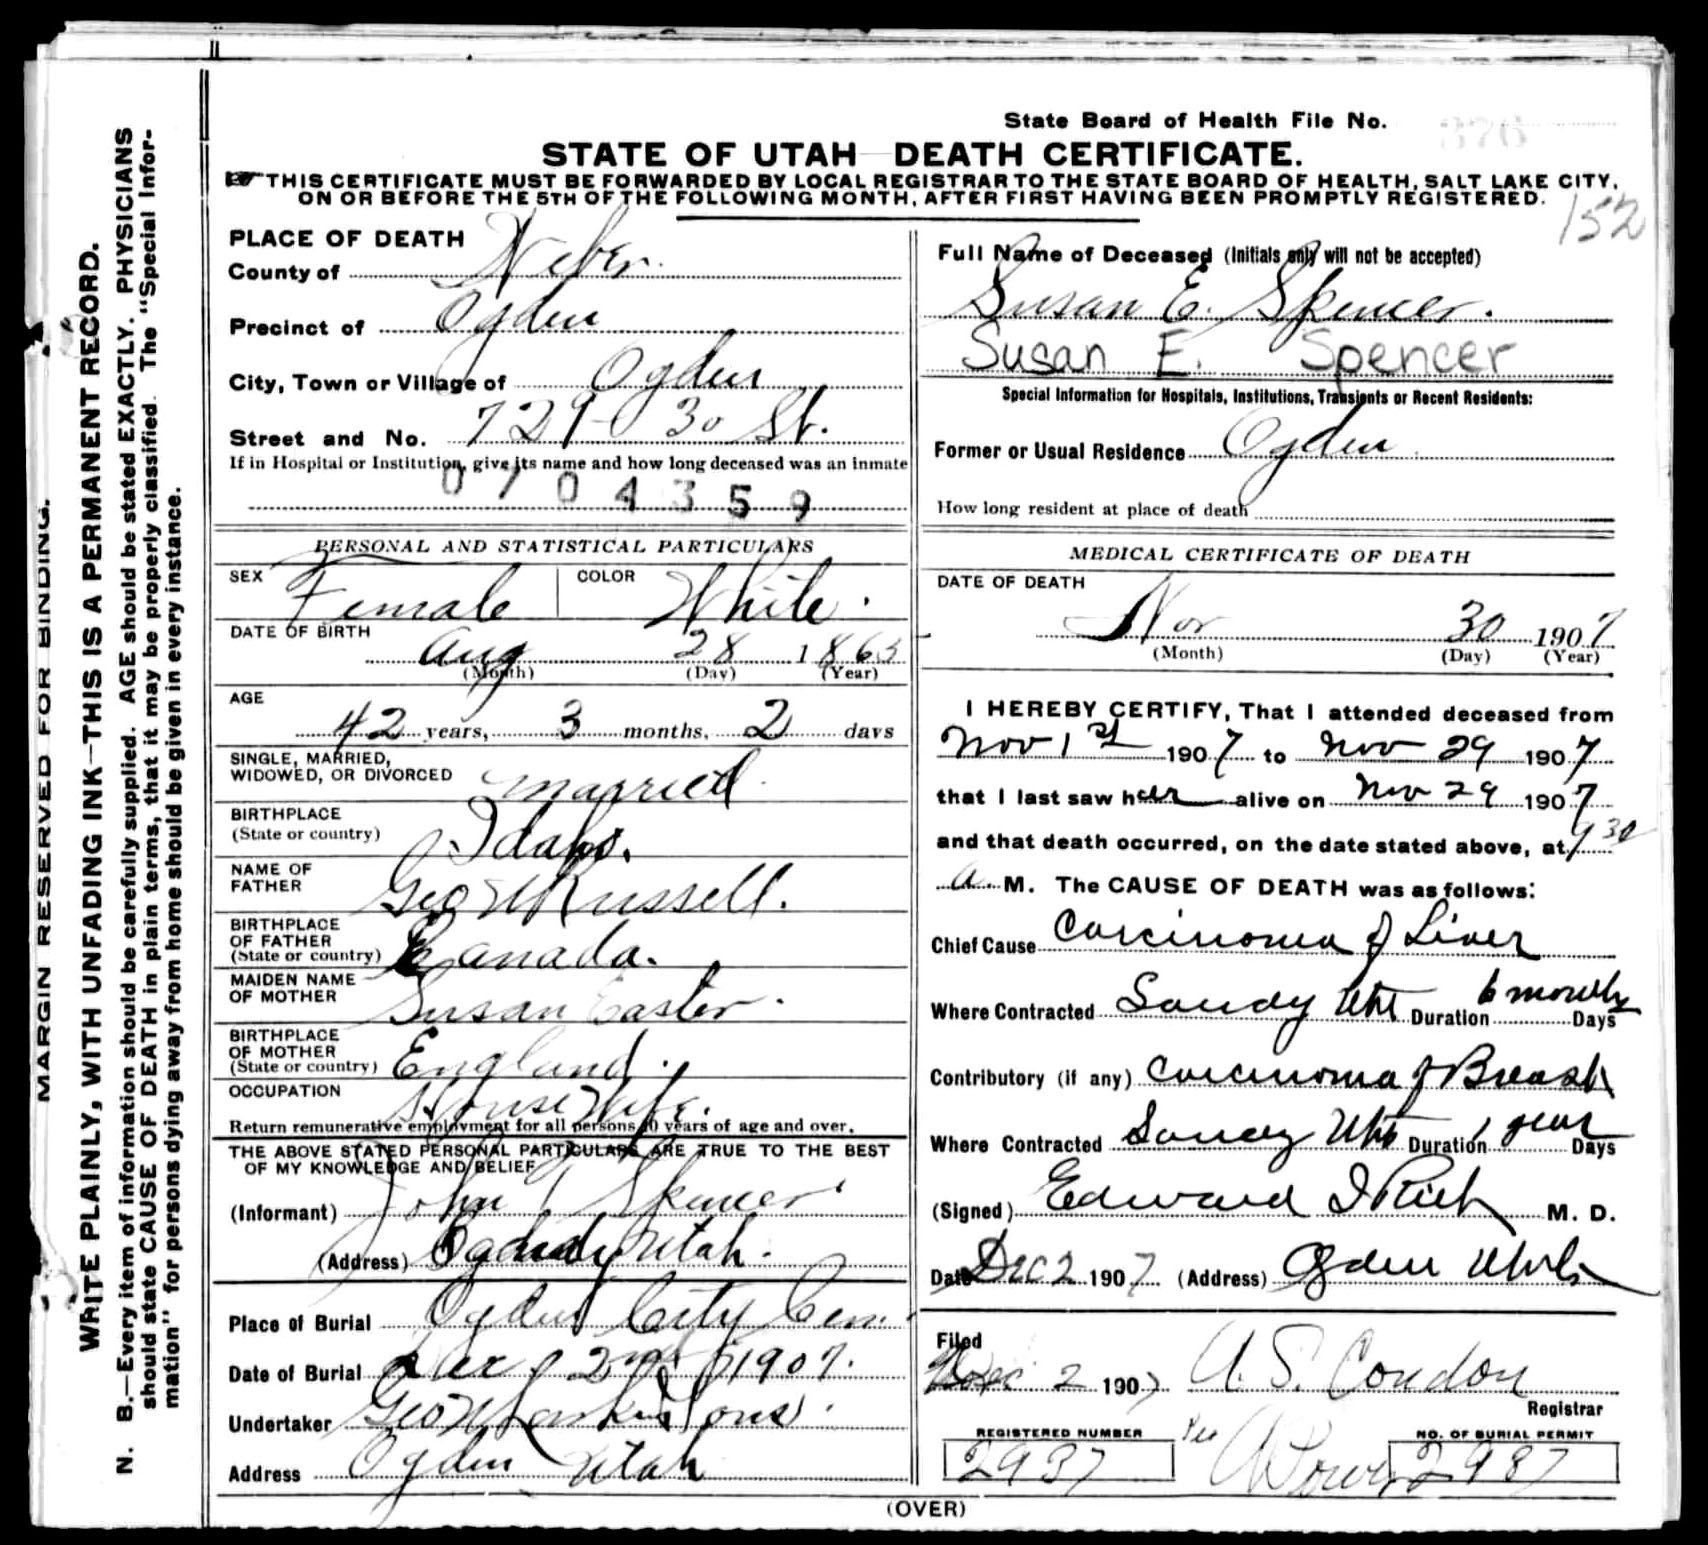 State Board of Health File No. 376
STATE OF UTAH DEATH CERTIFICATE.
THIS CERTIFICATE MUST BE FORWARDED BY LOCAL REGISTRAR TO THE STATE BOARD OF HEALTH, SALT LAKE CITY,
ON OR BEFORE THE 5TH OF THE FOLLOWING MONTH, AFTER FIRST HAVING BEEN PROMPTLY REGISTERED.
152
MARGIN RESERVED FOR BINDING.
WRITE PLAINLY, WITH UNFADING INK—THIS IS A PERMANENT RECORD.
N. B.—Every item of information should be carefully supplied. AGE should be stated EXACTLY. PHYSICIANS
should state CAUSE OF DEATH in plain terms, that it may be properly classified. The "Special Infor-
mation" for persons dying away from home should be given in every instance.
PLACE OF DEATH
County of Weber
Precinct of Ogden
City, Town or Village of Ogden
Street and No. 729 - 30 St.
If in Hospital or Institution, give its name and how long deceased was an inmate
0704359
PERSONAL AND STATISTICAL PARTICULARS
SEX Female COLOR White.
DATE OF BIRTH
Aug 28 1865
(Month) (Day) (Year)
AGE
42 years, 3 months, 2 days
SINGLE, MARRIED,
WIDOWED, OR DIVORCED married
BIRTHPLACE
(State or country) Idaho.
NAME OF
FATHER Geo W Russell.
BIRTHPLACE
OF FATHER
(State or country) Canada.
MAIDEN NAME
OF MOTHER Susan Easter.
BIRTHPLACE
OF MOTHER
(State or country) England.
OCCUPATION
House Wife.
Return remunerative employment for all persons 10 years of age and over.
THE ABOVE STATED PERSONAL PARTICULARS ARE TRUE TO THE BEST
OF MY KNOWLEDGE AND BELIEF
(Informant) John Spencer
(Address) Ogden Utah.
Place of Burial Ogden City Cem.
Date of Burial Dec 2nd 1907.
Undertaker Geo W Larkin Sons.
Address Ogden Utah
Full Name of Deceased (Initials only will not be accepted)
Susan E. Spencer.
Susan E. Spencer
Special Information for Hospitals, Institutions, Transients or Recent Residents:
Former or Usual Residence Ogden
How long resident at place of death
MEDICAL CERTIFICATE OF DEATH
DATE OF DEATH
Nov 30 1907
(Month) (Day) (Year)
I HEREBY CERTIFY, That I attended deceased from
Nov 1st 1907 to Nov 29 1907
that I last saw her alive on Nov 29 1907
and that death occurred, on the date stated above, at 9 30
a. M. The CAUSE OF DEATH was as follows:
Chief Cause Carcinoma of Liver
Where Contracted Sandy Utah Duration 6 months Days
Contributory (if any) Carcinoma of Breast
Where Contracted Sandy Utah Duration 1 year Days
(Signed) Edward I Rich M. D.
Date Dec 2 1907 (Address) Ogden Utah
Filed
Dec 2 1907 A. S. Condon
Registrar
REGISTERED NUMBER Per NO. OF BURIAL PERMIT
2937 2987
(OVER)